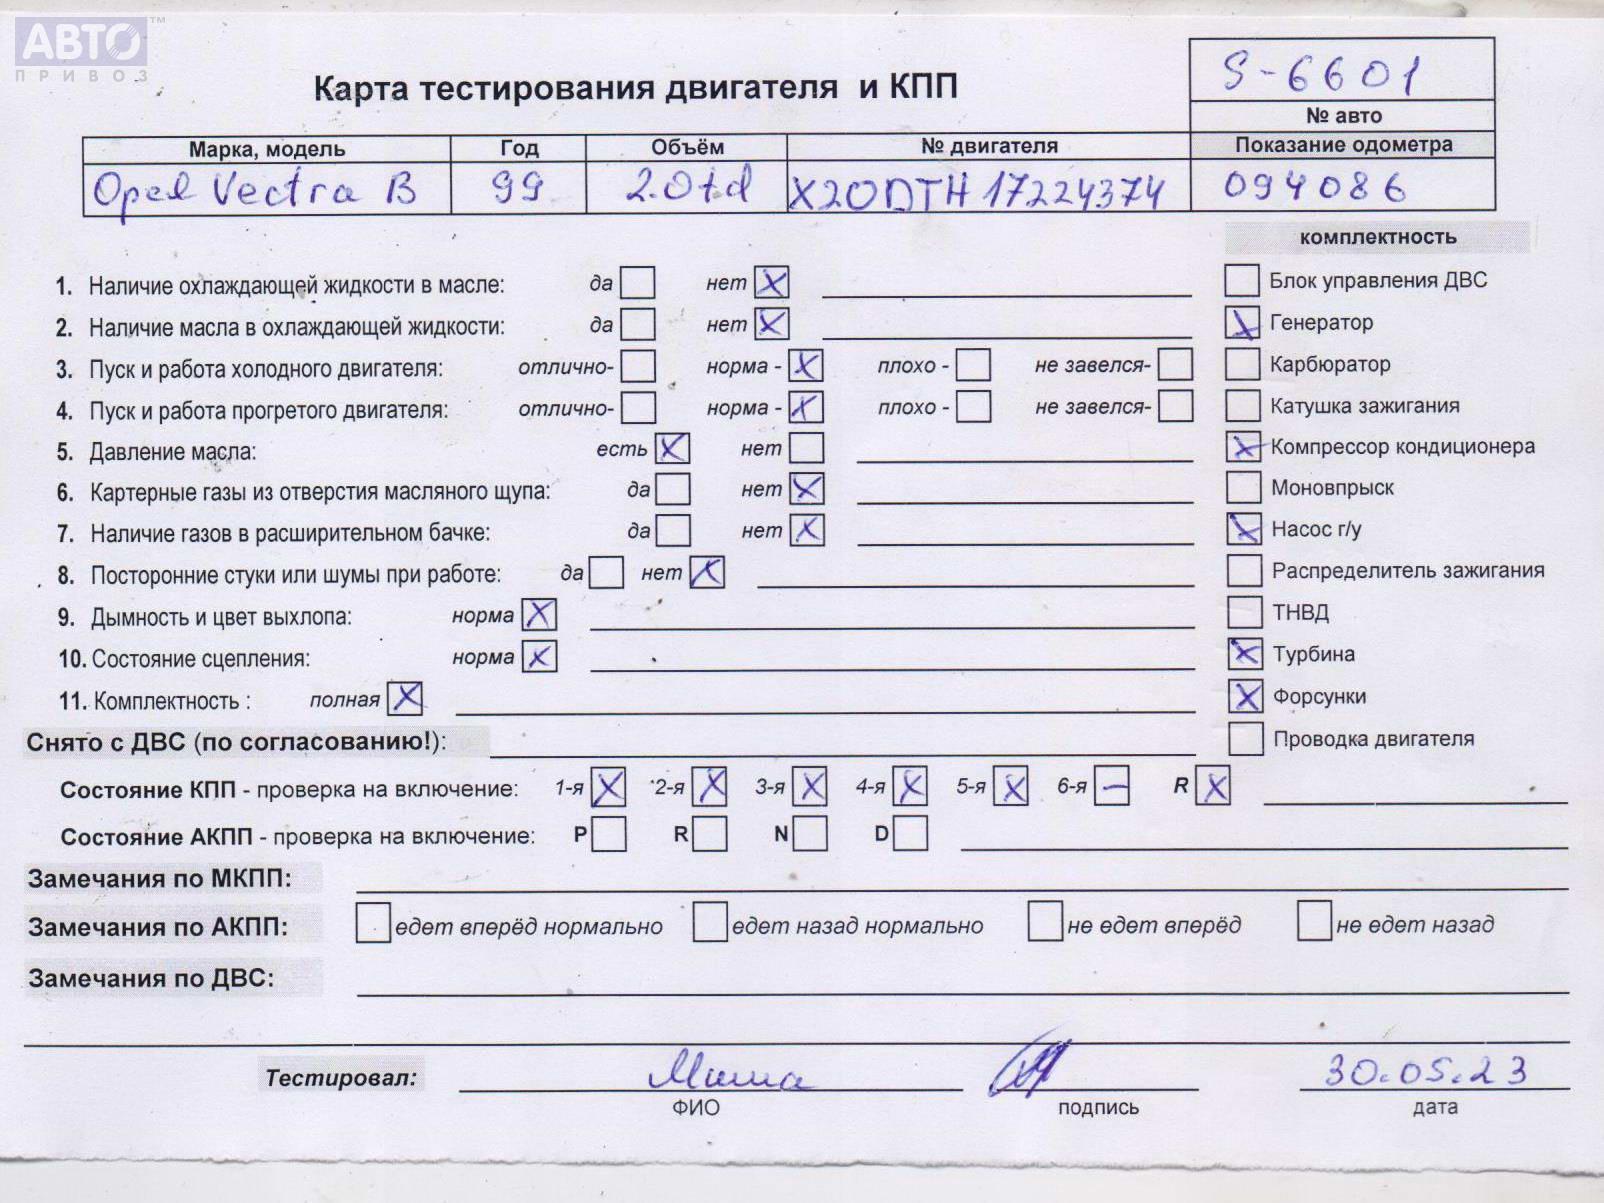 АВТО™
ПРИВОЗ
Карта тестирования двигателя и КПП
S-6601
№ авто
Марка, модель Год Объём № двигателя Показание одометра
Opel Vectra B 99 2.0td X20DTH 17224374 094086
комплектность
1. Наличие охлаждающей жидкости в масле: да нет X
Блок управления ДВС
2. Наличие масла в охлаждающей жидкости: да нет X
X Генератор
3. Пуск и работа холодного двигателя: отлично- норма - X плохо - не завелся-
Карбюратор
4. Пуск и работа прогретого двигателя: отлично- норма - X плохо - не завелся-
Катушка зажигания
5. Давление масла: есть X нет
X Компрессор кондиционера
6. Картерные газы из отверстия масляного щупа: да нет X
Моновпрыск
7. Наличие газов в расширительном бачке: да нет X
X Насос г/у
8. Посторонние стуки или шумы при работе: да нет X
Распределитель зажигания
9. Дымность и цвет выхлопа: норма X
ТНВД
10. Состояние сцепления: норма X
X Турбина
11. Комплектность : полная X
X Форсунки
Снято с ДВС (по согласованию!):
Проводка двигателя
Состояние КПП - проверка на включение: 1-я X 2-я X 3-я X 4-я X 5-я X 6-я — R X
Состояние АКПП - проверка на включение: P R N D
Замечания по МКПП:
Замечания по АКПП: едет вперёд нормально едет назад нормально не едет вперёд не едет назад
Замечания по ДВС:
Тестировал: Миша 30.05.23
ФИО подпись дата